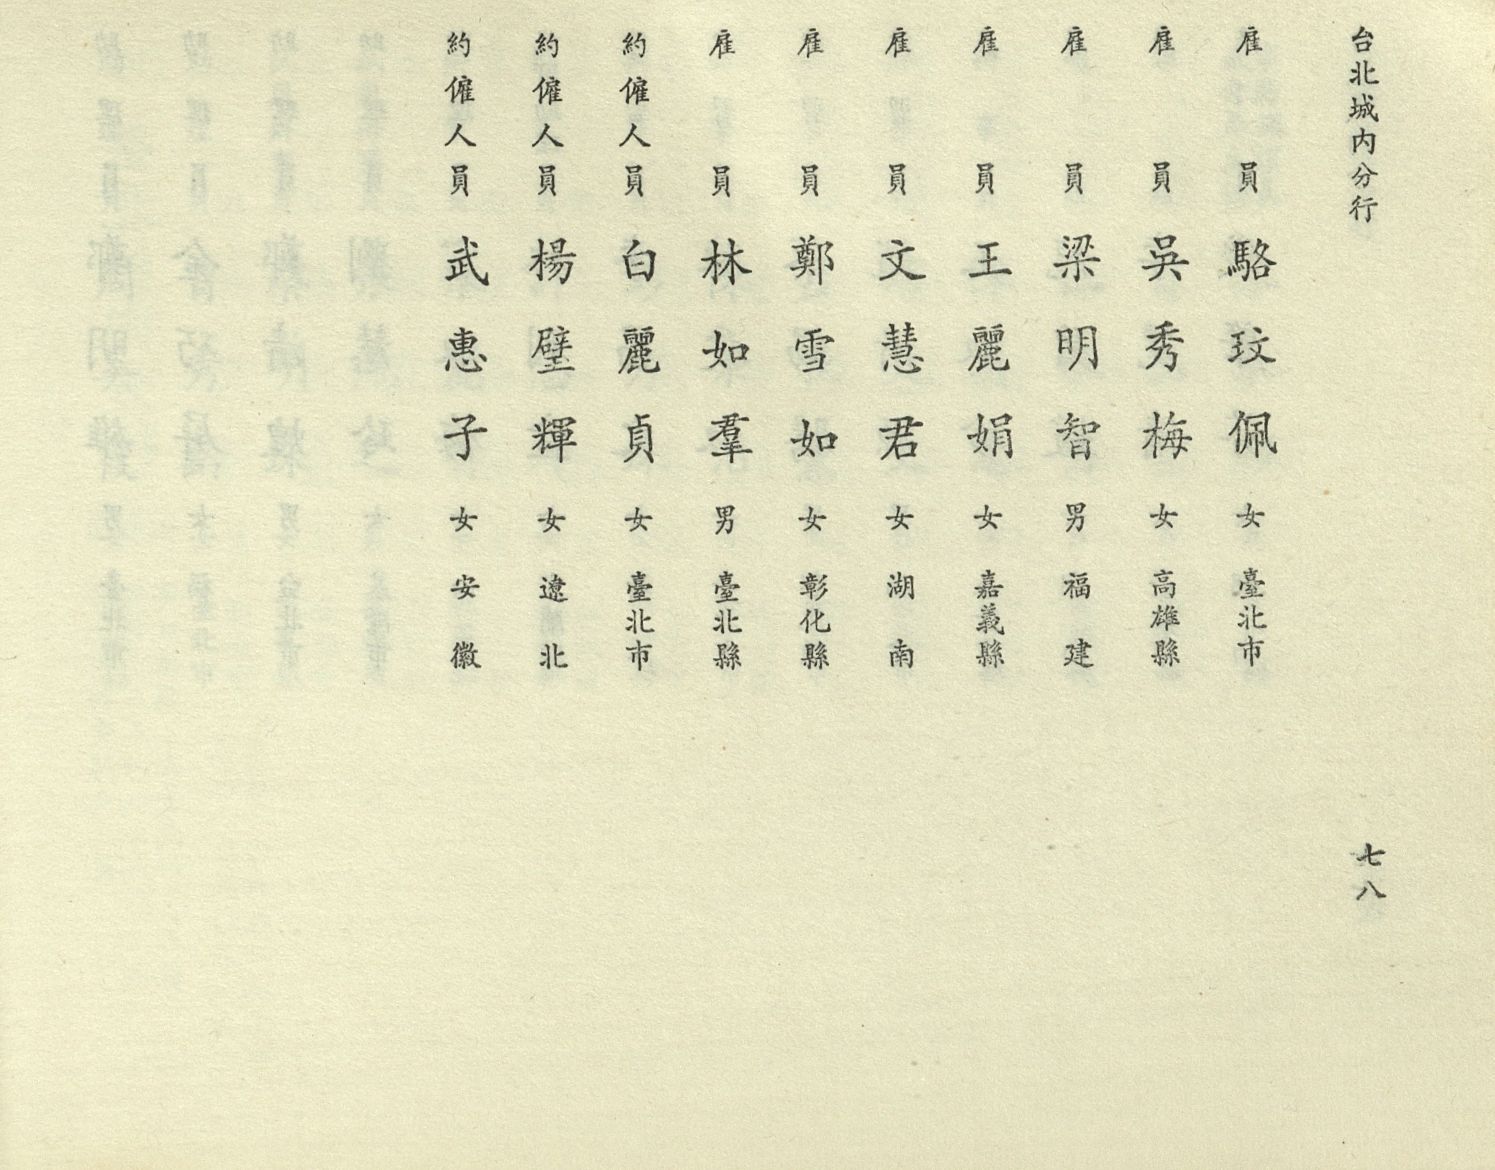 台北城内分行
七八
雇員 駱玟佩 女 臺北市
雇員 吳秀梅 女 高雄縣
雇員 梁明智 男 福建
雇員 王麗娟 女 嘉義縣
雇員 文慧君 女 湖南
雇員 鄭雪如 女 彰化縣
雇員 林如羣 男 臺北縣
約僱人員 白麗貞 女 臺北市
約僱人員 楊璧輝 女 遼北
約僱人員 武惠子 女 安徽